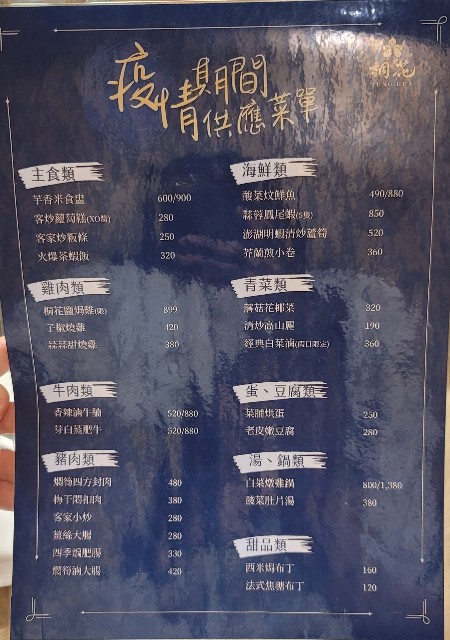 疫情期間
供應菜單
桐花
TUNG HUA
主食類
芋香米食盅 600/900
客炒蘿蔔糕(XO醬) 280
客家炒粄條 250
火爆茶蝦飯 320
雞肉類
桐花鹽焗雞(限) 899
子椒燒雞 420
蒜蒜甜燒雞 380
牛肉類
香辣滷牛腩 520/880
芽白蒸肥牛 520/880
豬肉類
爌筍四方封肉 480
梅干燜扣肉 380
客家小炒 280
薑絲大腸 280
四季煸肥腸 330
爌筍滷大腸 420
海鮮類
酸菜炆鮮魚 490/880
蒜蓉鳳尾蝦(5隻) 850
澎湖明蝦清炒蘆筍 520
芥蘭煎小卷 360
青菜類
蘑菇花椰菜 320
清炒高山麗 190
經典白菜滷(周日限定) 360
蛋、豆腐類
菜脯烘蛋 250
老皮嫩豆腐 280
湯、鍋類
白菜燉雞鍋 800/1,380
酸菜肚片湯 380
甜品類
西米焗布丁 160
法式焦糖布丁 120